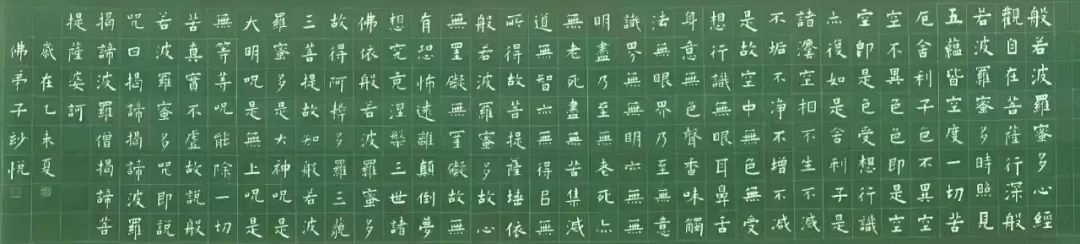 般若波羅蜜多心經
觀自在菩薩行深般
若波羅蜜多時照見
五蘊皆空度一切苦
厄舍利子色不異空
空不異色色即是空
空即是色受想行識
亦復如是舍利子是
諸灋空相不生不滅
不垢不淨不增不減
是故空中無色無受
想行識無眼耳鼻舌
身意無色聲香味觸
法無眼界乃至無意
識界無無明亦無無
明盡乃至無老死亦
無老死盡無苦集滅
道無智亦無得㠯無
所得故菩提薩埵依
般若波羅蜜多故心
無罣礙無罣礙故無
有恐怖遠離顛倒夢
想究竟涅槃三世諸
佛依般若波羅蜜多
故得阿耨多羅三藐
三菩提故知般若波
羅蜜多是大神呪是
大明呪是無上呪是
無等等呪能除一切
苦真實不虛故說般
若波羅蜜多呪即說
呪曰揭諦揭諦波羅
揭諦波羅僧揭諦菩
提薩婆訶
歲在乙未夏
佛弟子妙悅